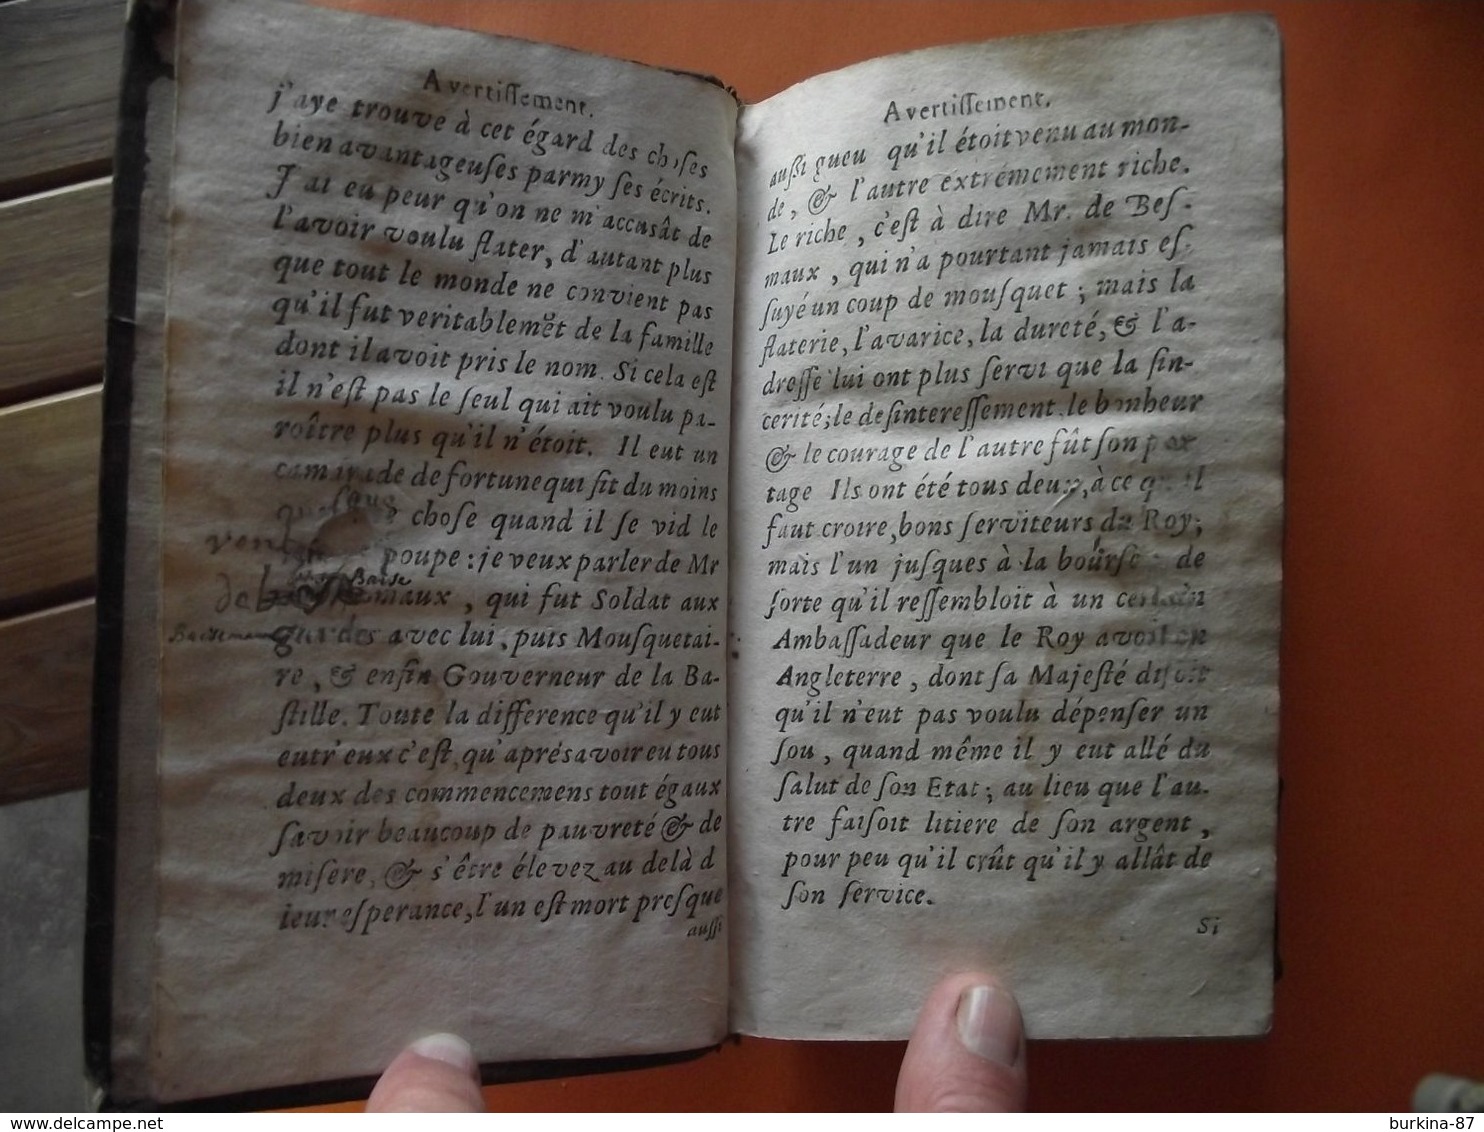 Avertiſſement.
j'aye trouvé à cet égard des choſes
bien avantageuſes parmy ſes écrits.
J'ai eu peur qu'on ne m'accusât de
l'avoir voulu flater, d'autant plus
que tout le monde ne convient pas
qu'il fut veritablemẽt de la famille
dont il avoit pris le nom. Si cela eſt
il n'eſt pas le ſeul qui ait voulu pa-
roître plus qu'il n'étoit. Il eut un
camarade de fortune qui fit du moins
quelque choſe quand il ſe vid le
vent poupe : je veux parler de Mr
de Baiſe maux, qui fut Soldat aux
gardes avec lui, puis Mouſquetai-
re, & enfin Gouverneur de la Ba-
ſtille. Toute la difference qu'il y eut
entr'eux c'eſt, qu'aprés avoir eu tous
deux des commencemens tout égaux
ſavoir beaucoup de pauvreté & de
miſere, & s'être élevez au delà d
leur eſperance, l'un eſt mort preſque
auſſi
Avertiſſement.
auſſi gueu qu'il étoit venu au mon-
de, & l'autre extrémement riche.
Le riche, c'eſt à dire Mr. de Beſ-
maux, qui n'a pourtant jamais eſ-
ſuyé un coup de mouſquet ; mais la
flaterie, l'avarice, la dureté, & l'a-
dreſſe lui ont plus ſervi que la ſin-
cerité; le deſintereſſement, le bonheur
& le courage de l'autre fût ſon par
tage Ils ont été tous deux, à ce qu'il
faut croire, bons ſerviteurs du Roy;
mais l'un juſques à la bourſe de
ſorte qu'il reſſembloit à un certain
Ambaſſadeur que le Roy avoit en
Angleterre, dont ſa Majeſté diſoit
qu'il n'eut pas voulu dépenſer un
ſou, quand même il y eut allé du
ſalut de ſon Etat; au lieu que l'au-
tre faiſoit litiere de ſon argent,
pour peu qu'il crût qu'il y allât de
ſon ſervice.
Si
burkina-87